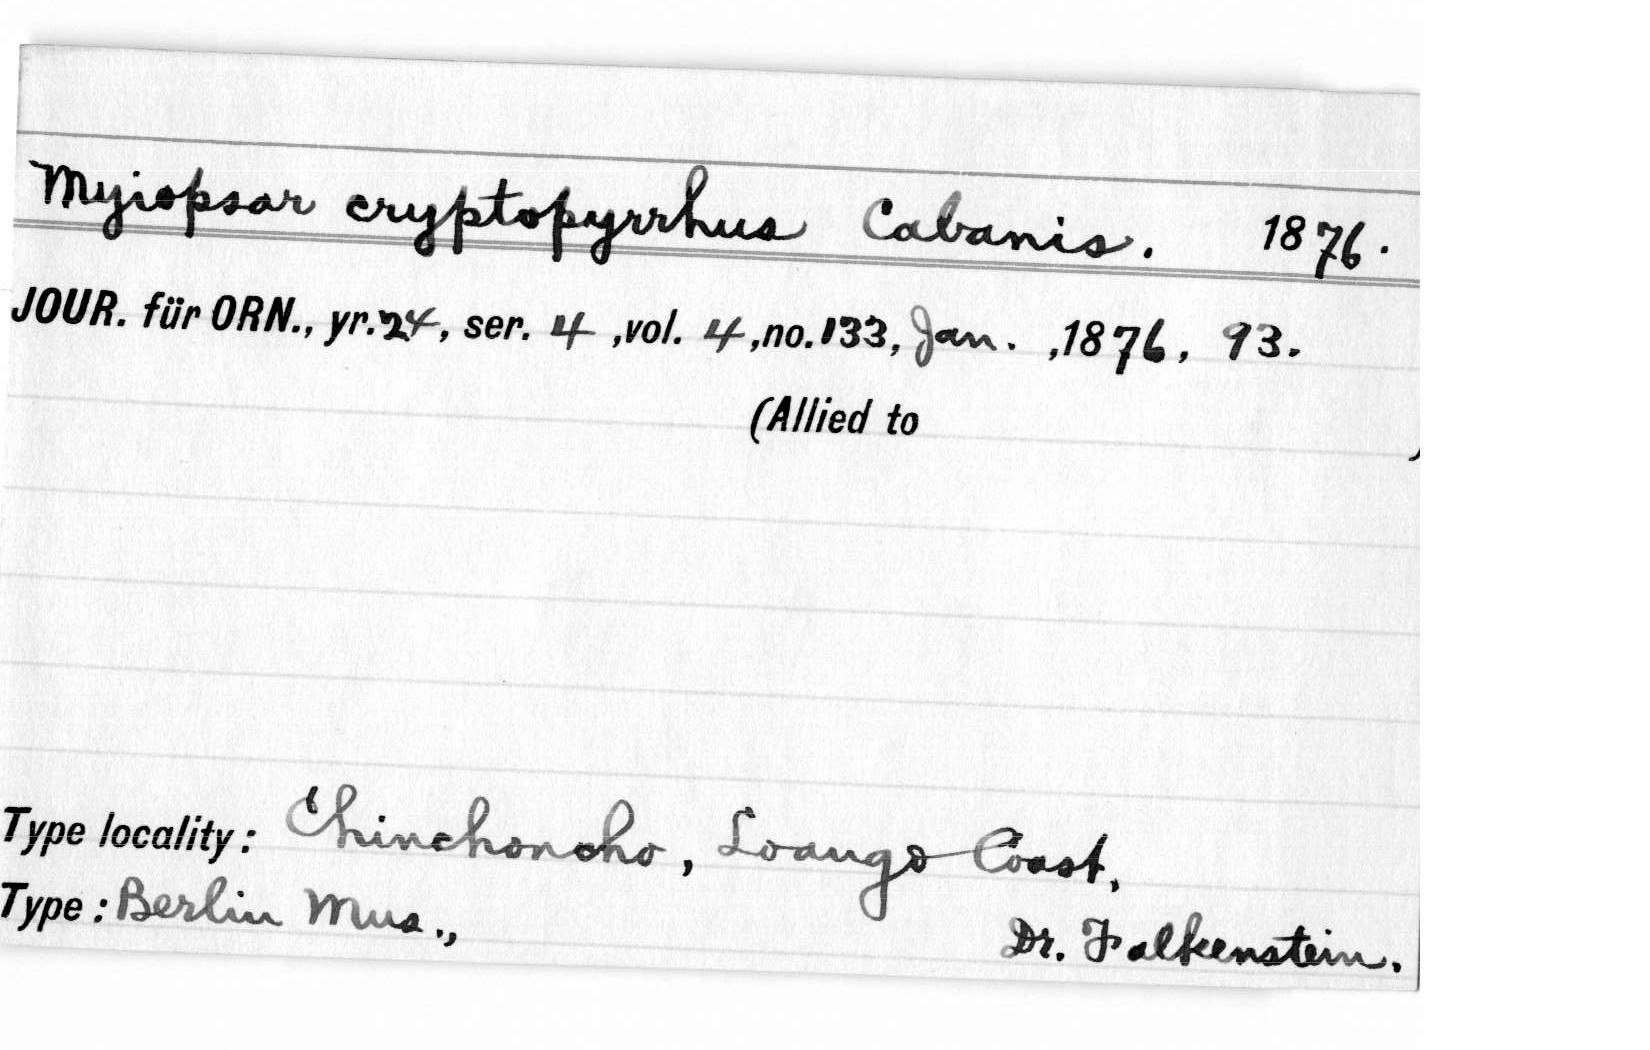 Myiopsar cryptopyrrhus Cabanis. 1876.
JOUR. für ORN., yr.24, ser. 4 ,vol. 4 ,no.133, Jan. ,1876, 93.
(Allied to )
Type locality: Chinchoncho, Loango Coast,
Type: Berlin Mus., Dr. Falkenstein.